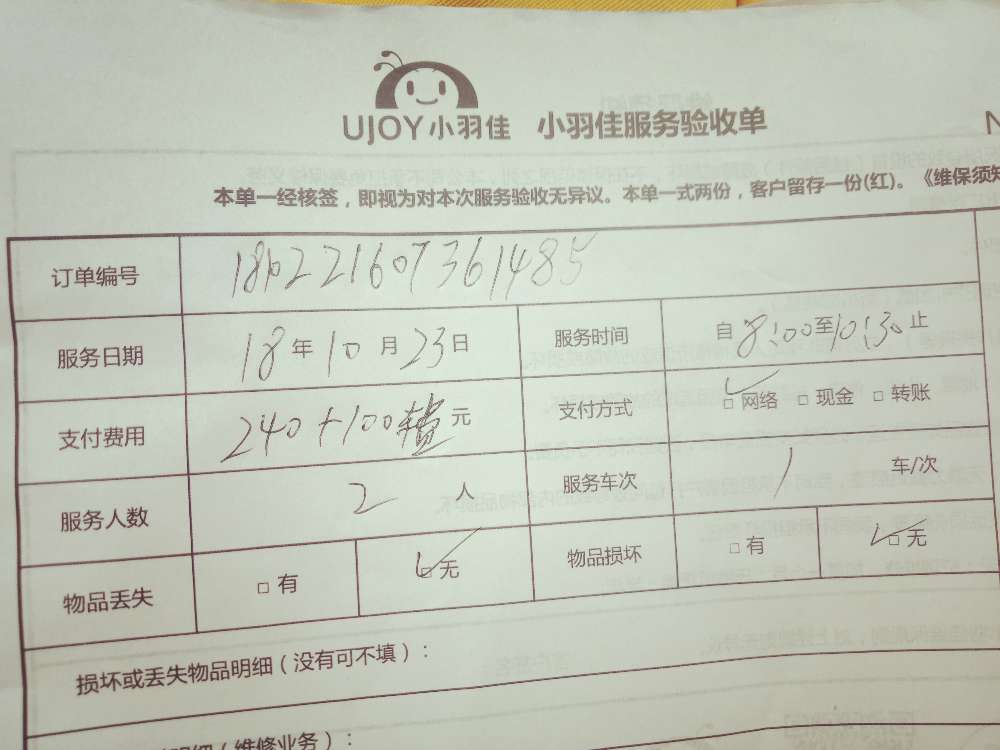 UJOY小羽佳 小羽佳服务验收单
本单一经核签，即视为对本次服务验收无异议。本单一式两份，客户留存一份(红)。《维保须知
订单编号 18022160736 1485
服务日期 18年10月23日 服务时间 自8:00至10:30止
支付费用 240+100 元 支付方式 □网络 □现金 □转账
服务人数 2人 服务车次 1 车/次
物品丢失 □有 □无 物品损坏 □有 □无
损坏或丢失物品明细（没有可不填）：
明细（维修业务）：